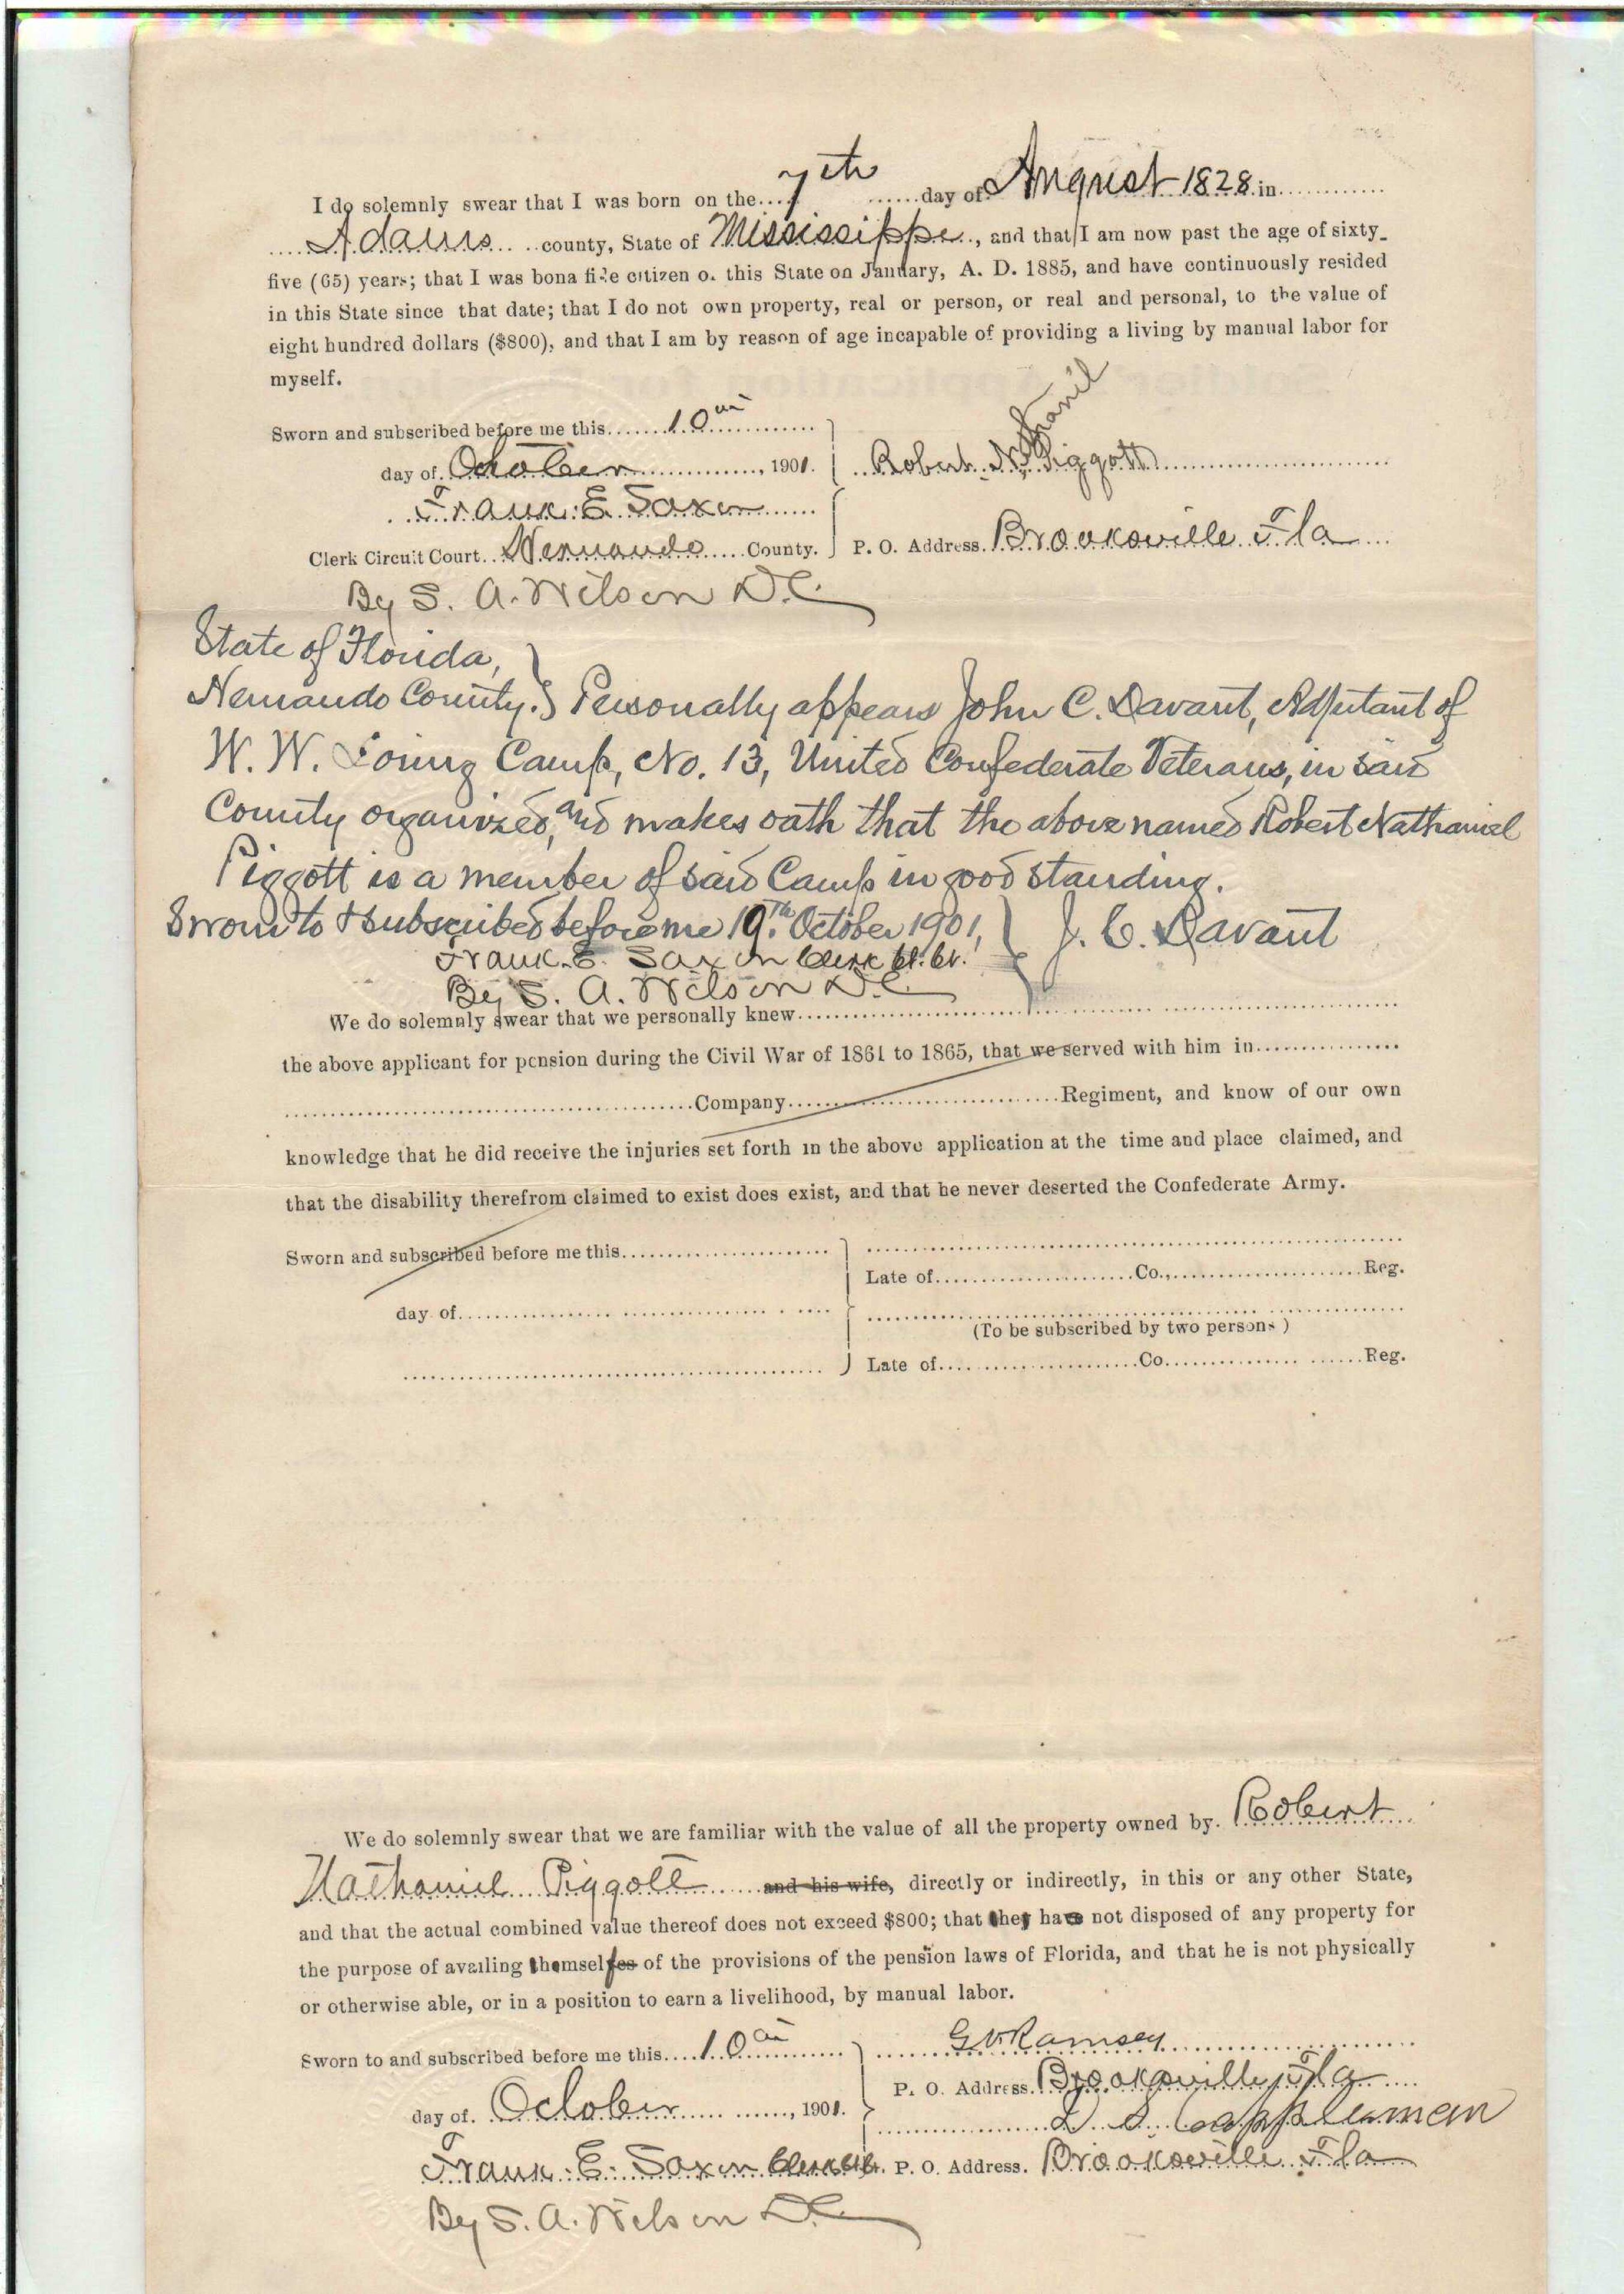 I do solemnly swear that I was born on the 7th day of August 1828 in
Adams county, State of Mississippi, and that I am now past the age of sixty-
five (65) years; that I was bona fide citizen of this State on January, A. D. 1885, and have continuously resided
in this State since that date; that I do not own property, real or person, or real and personal, to the value of
eight hundred dollars ($800), and that I am by reason of age incapable of providing a living by manual labor for
myself.
Sworn and subscribed before me this 10th
day of October, 1901.
Robert Nathaniel Piggott
Frank E Saxon
Clerk Circuit Court Hernando County.
P. O. Address. Brooksville Fla
By S. A. Wilson D.C.
State of Florida,
Hernando County. Personally appears John C. Davant, Adjutant of
W. W. Loring Camp, No. 13, United Confederate Veterans, in said
County organized, and makes oath that the above named Robert Nathaniel
Piggott is a member of said Camp in good standing.
Sworn to & subscribed before me 19th October 1901,
J. C. Davant
Frank E. Saxon Clerk Ct. Ct.
By S. A. Wilson D.C.
We do solemnly swear that we personally knew
the above applicant for pension during the Civil War of 1861 to 1865, that we served with him in
Company Regiment, and know of our own
knowledge that he did receive the injuries set forth in the above application at the time and place claimed, and
that the disability therefrom claimed to exist does exist, and that he never deserted the Confederate Army.
Sworn and subscribed before me this
Late of Co., Reg.
day of
(To be subscribed by two persons)
Late of Co Reg.
We do solemnly swear that we are familiar with the value of all the property owned by Robert
Nathaniel Piggott and his wife, directly or indirectly, in this or any other State,
and that the actual combined value thereof does not exceed $800; that he has not disposed of any property for
the purpose of availing himself of the provisions of the pension laws of Florida, and that he is not physically
or otherwise able, or in a position to earn a livelihood, by manual labor.
Sworn to and subscribed before me this 10th
G V Ramsey
P. O. Address. Brooksville, Fla
day of October, 1901.
D S Coppleman
Frank E. Saxon Clerk
P. O. Address. Brooksville Fla
By S. A. Wilson D.C.